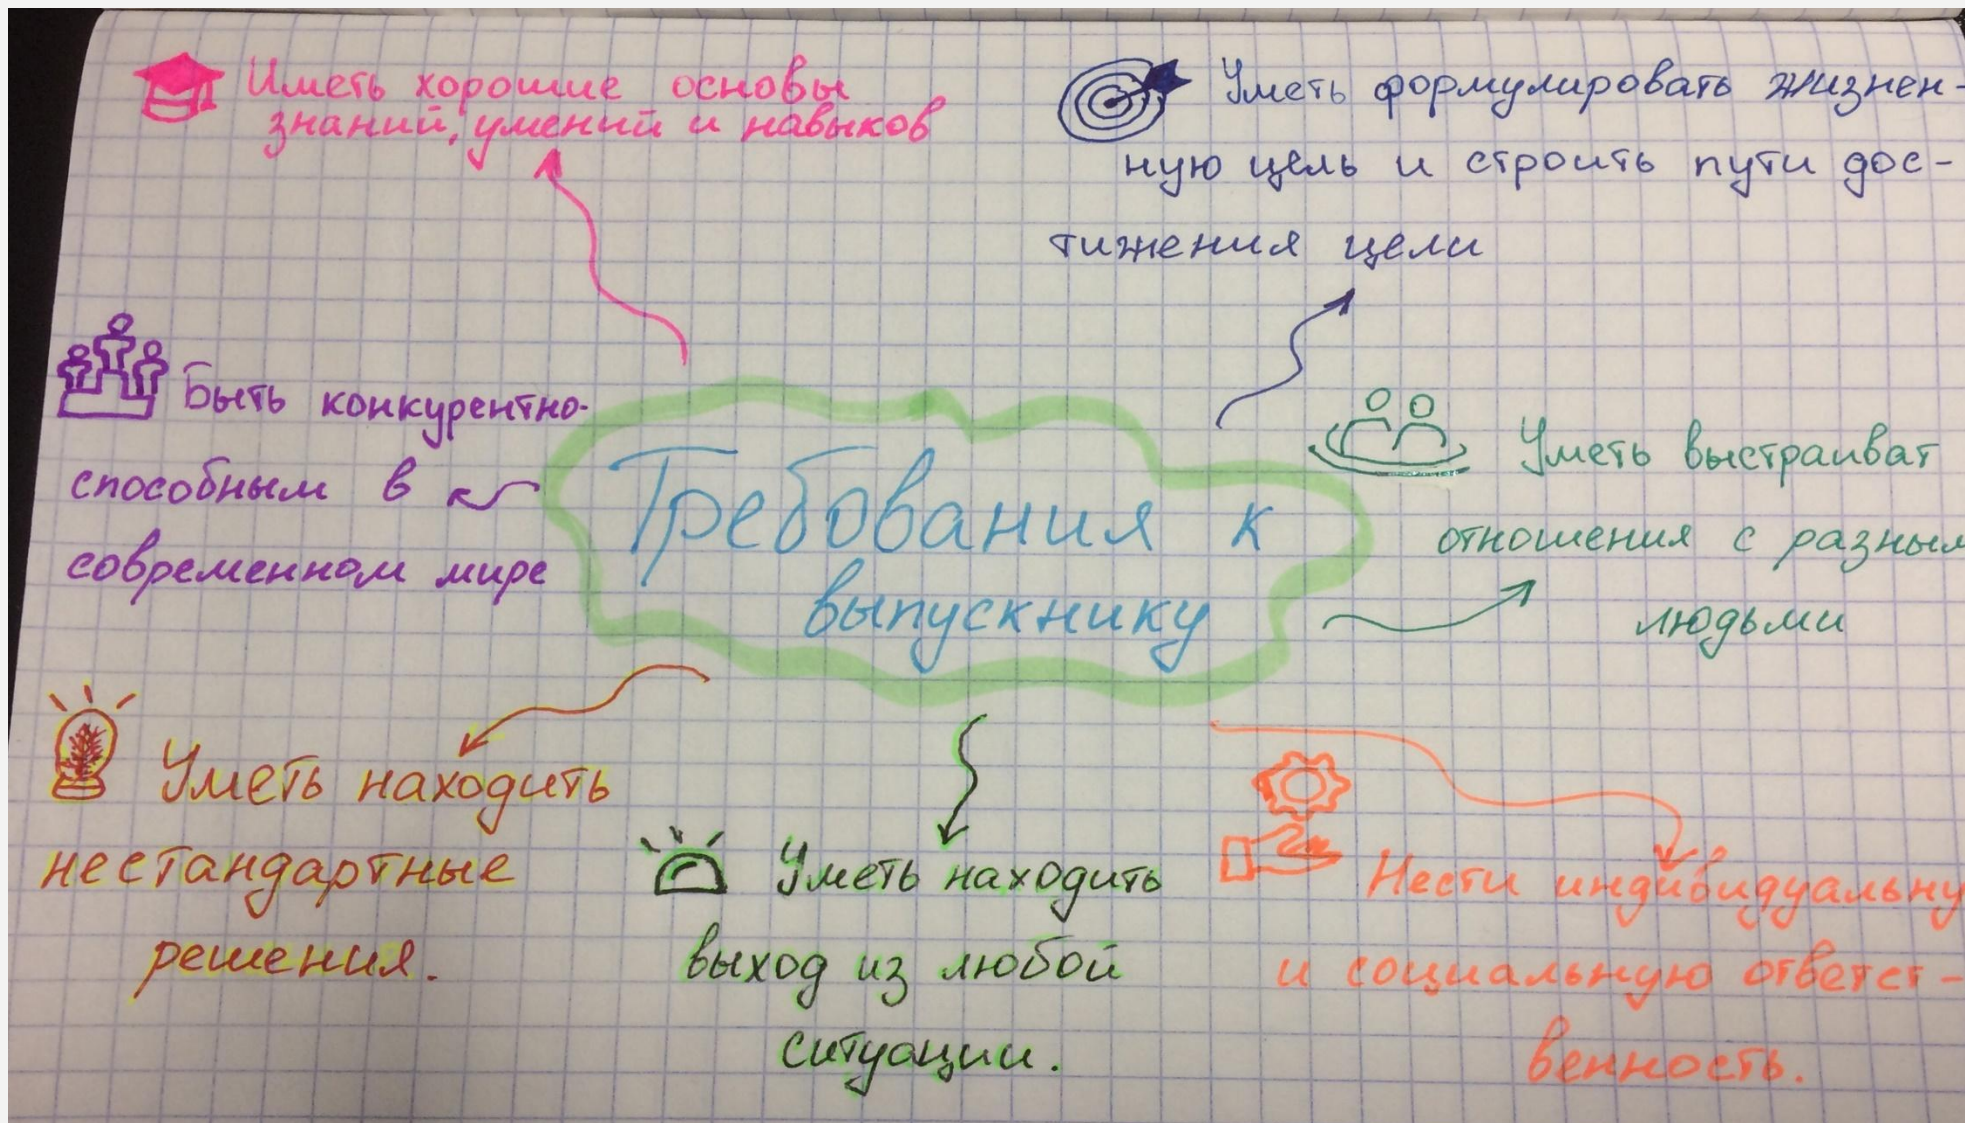 Иметь хорошие основы
знаний, умений и навыков
Уметь формулировать жизнен-
ную цель и строить пути дос-
тижения цели
Быть конкурентно-
способным в
современном мире
Требования к
выпускнику
Уметь выстраиват
отношения с разным
людьми
Уметь находить
нестандартные
решения.
Уметь находить
выход из любой
ситуации.
Нести индивидуальну
и социальную ответст-
венность.